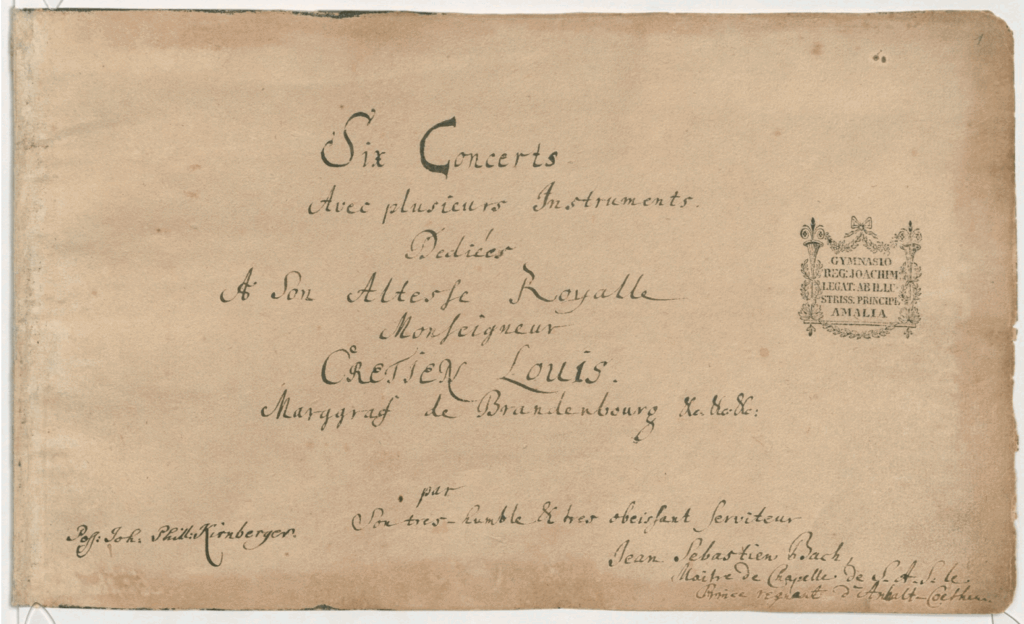 Six Concerts
Avec plusieurs Instruments.
Dediées
A Son Altesse Royalle
Monseigneur
CRETIEN LOUIS.
Marggraf de Brandenbourg &c. &c. &c:
par
Son tres-humble & tres obeissant serviteur
Jean Sebastien Bach,
Maitre de Chapelle de S. A. S. le
Prince regnant d'Anhalt-Coethen.
Poss: Joh: Phill: Kirnberger.
GYMNASIO
REG: JOACHIM:
LEGAT. AB ILLU
STRISS. PRINCIPE
AMALIA
1